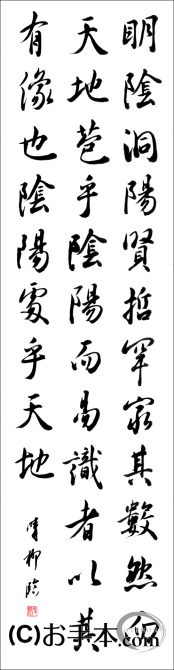 明陰洞陽賢哲罕窮其數然而
天地苞乎陰陽而易識者以其
有像也陰陽處乎天地
晴柳臨
(C)お手本.com